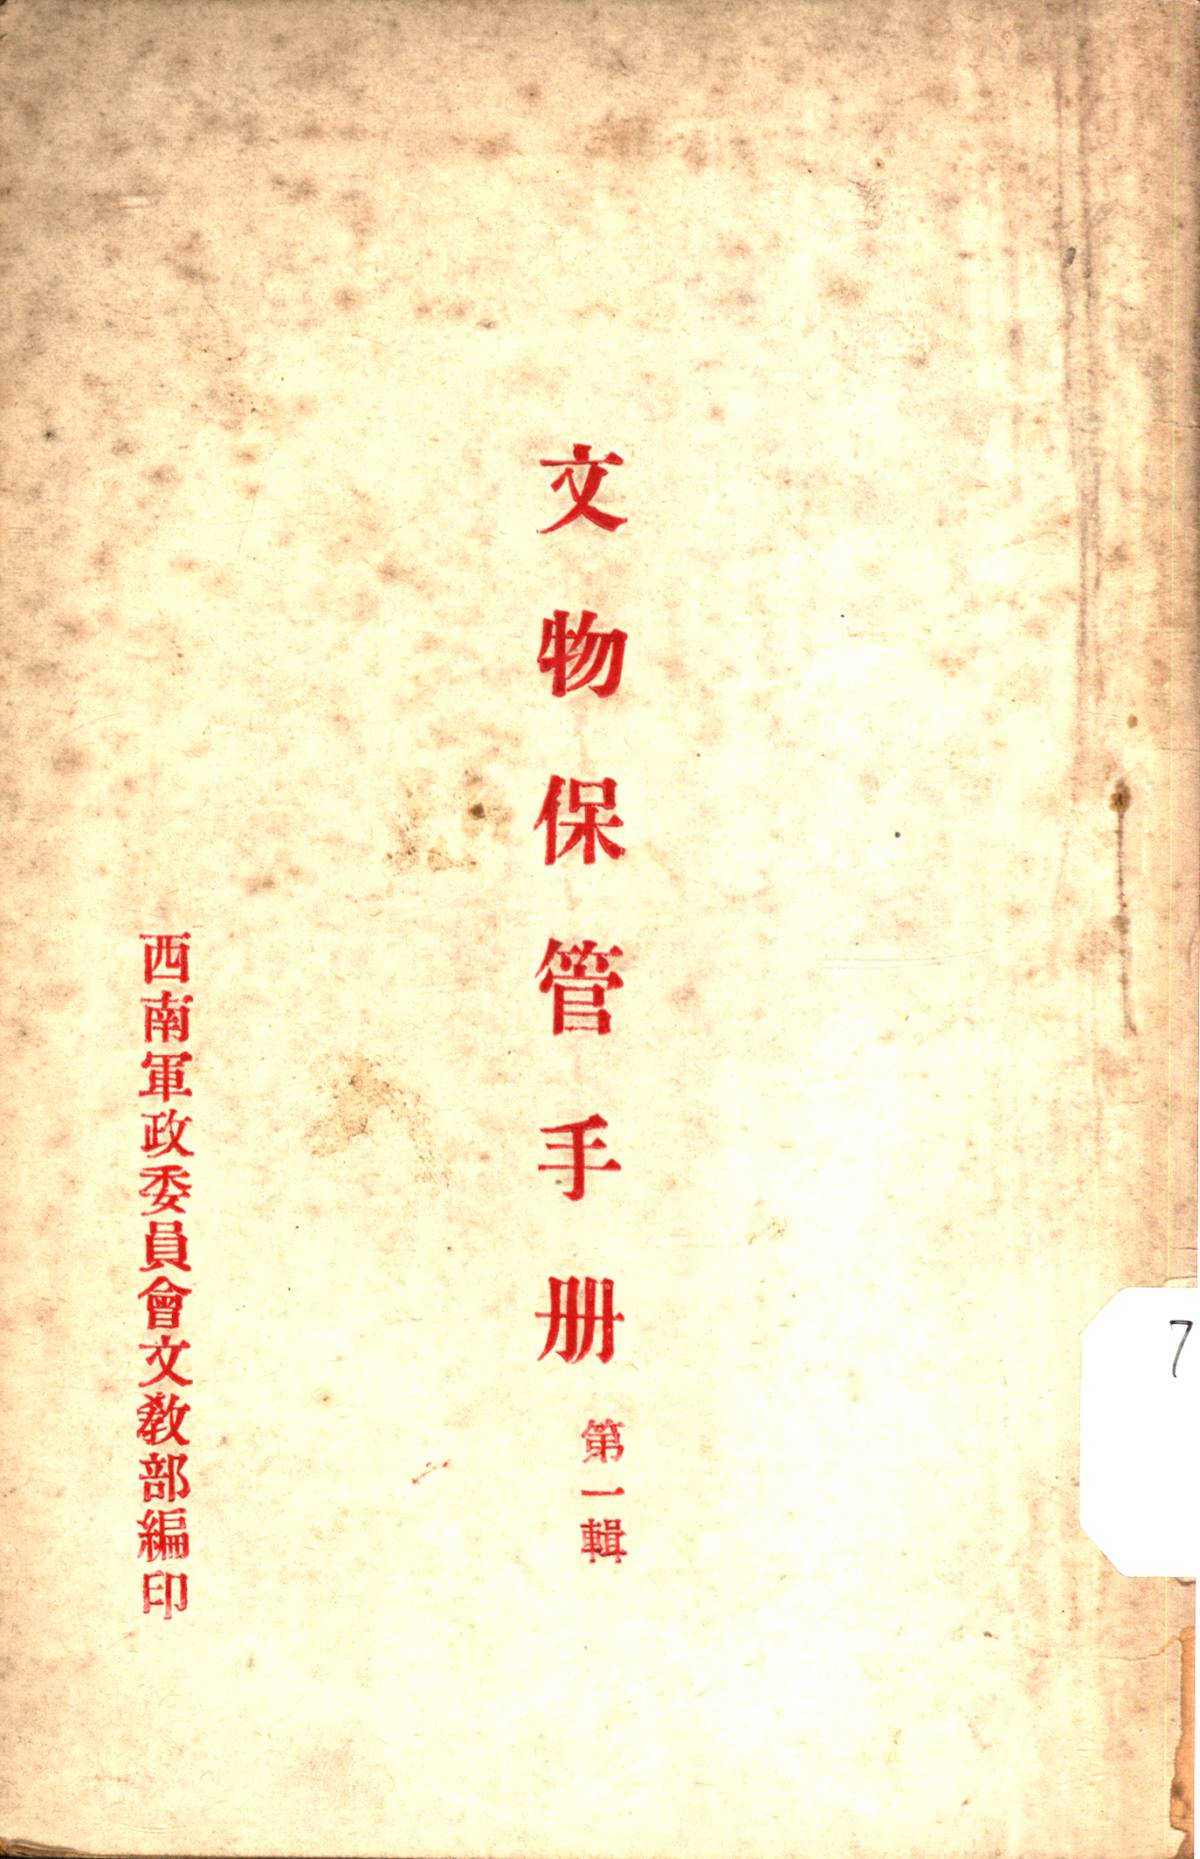 文物保管手册
第一輯
西南軍政委員會文敎部編印
7